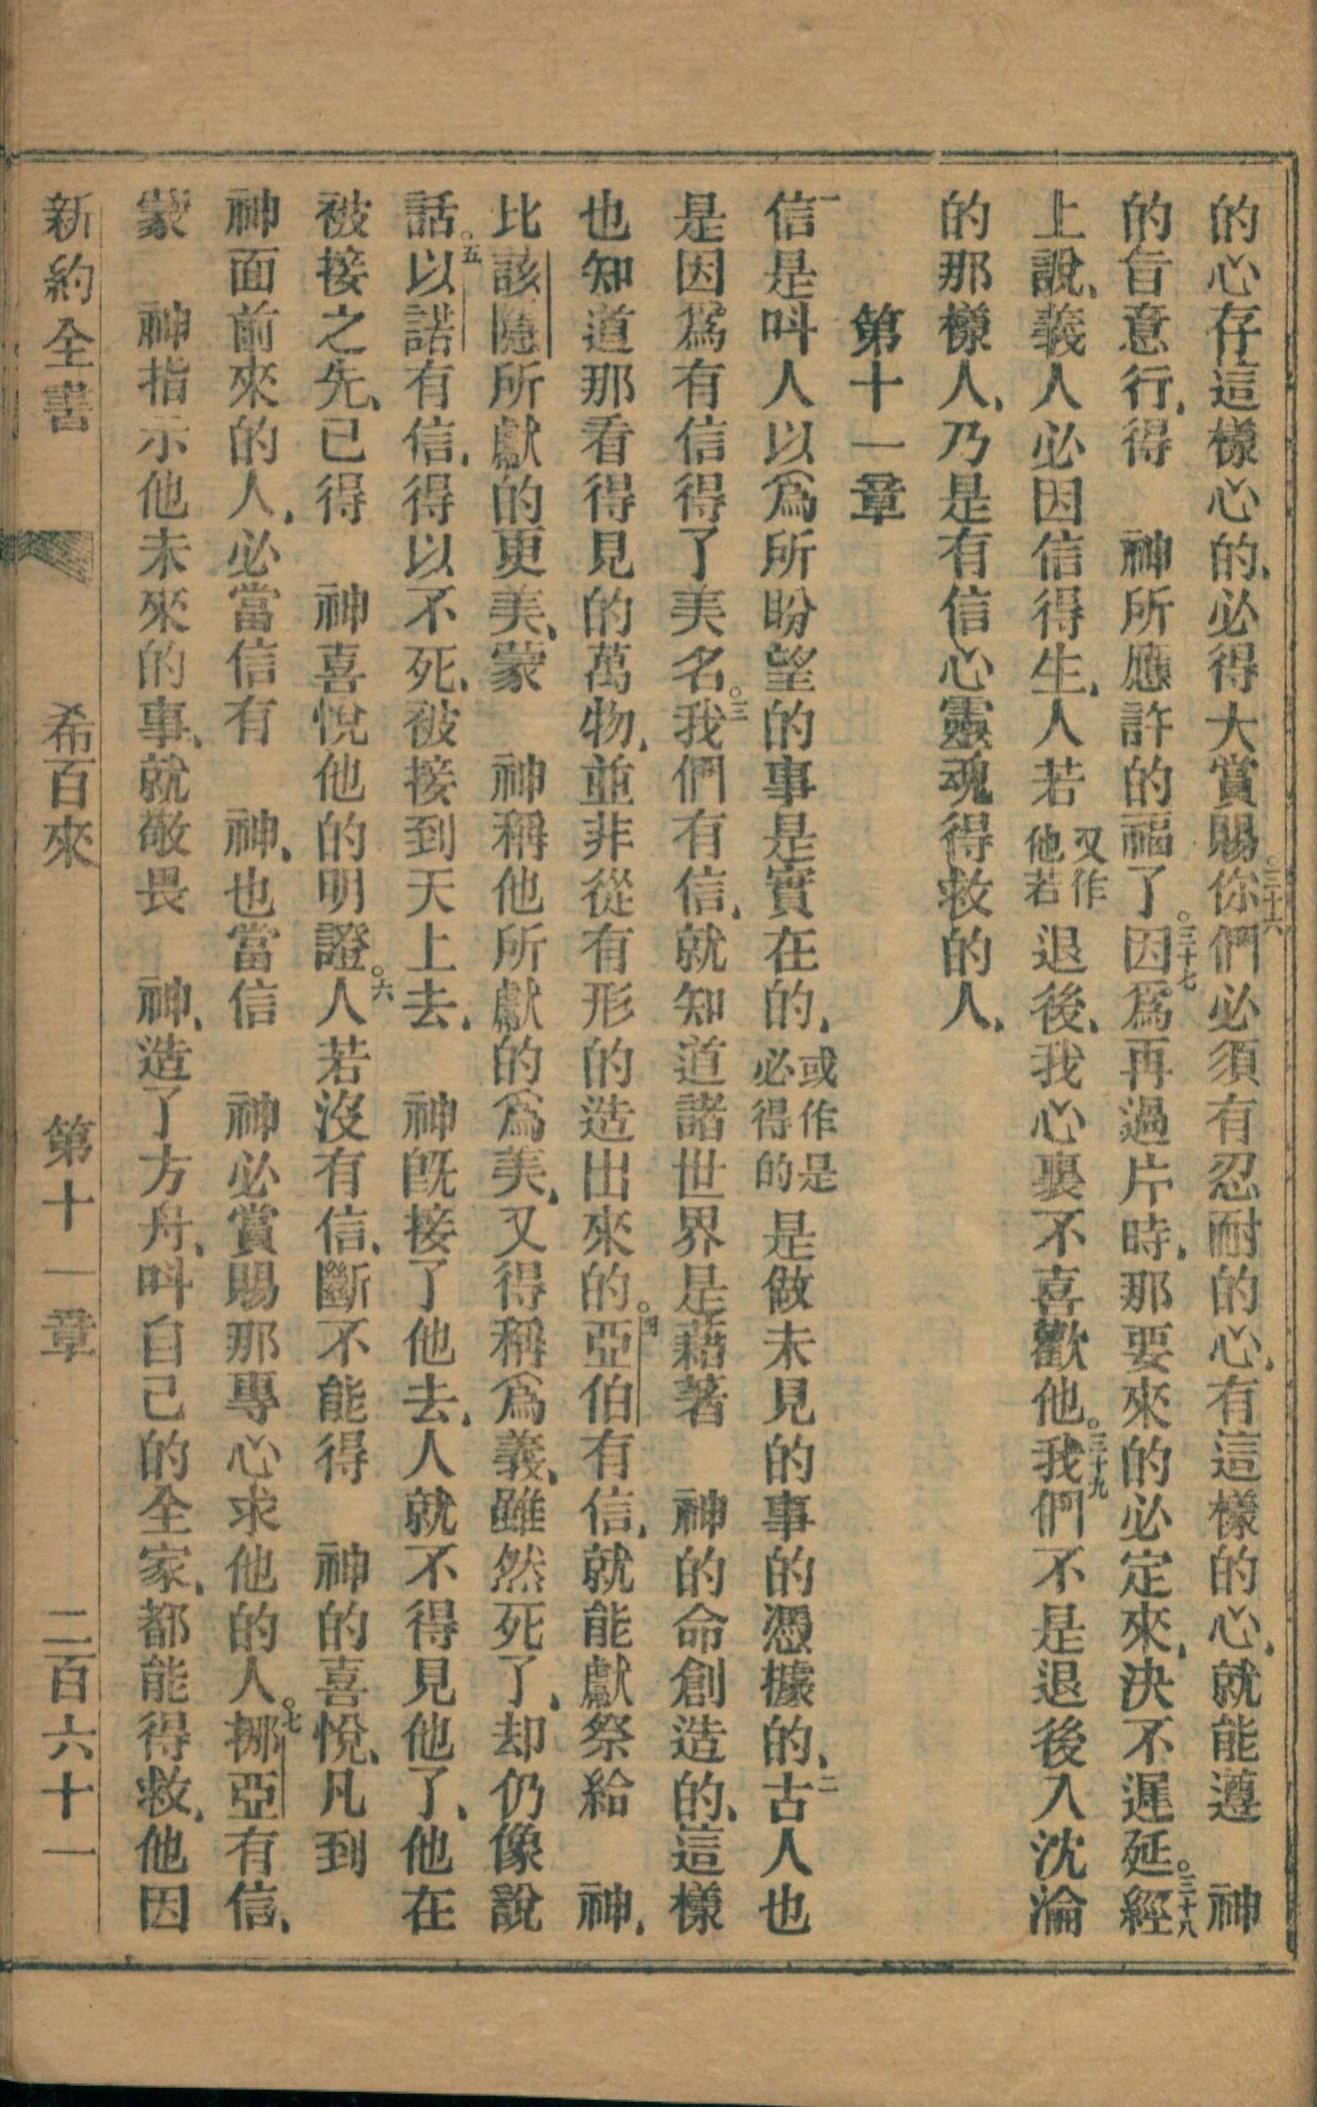 的心存這樣心的、必得大賞賜。三十六你們必須有忍耐的心、有這樣的心、就能遵　神
的旨意行、得　神所應許的福了。三十七因爲再過片時、那要來的必定來、決不遲延。三十八經
上說、義人必因信得生、人若又作他若退後、我心裏不喜歡他。三十九我們不是退後入沈淪
的那樣人、乃是有信心靈魂得救的人、
第十一章
一信是呌人以爲所盼望的事是實在的、或作是必得的是做未見的事的憑據的、二古人也
是因爲有信得了美名。三我們有信、就知道諸世界是藉著　神的命創造的、這樣
也知道那看得見的萬物、並非從有形的造出來的。四亞伯有信、就能獻祭給　神、
比該隱所獻的更美、蒙　神稱他所獻的爲美、又得稱爲義、雖然死了、却仍像說
話。五以諾有信、得以不死、被接到天上去、　神旣接了他去、人就不得見他了、他在
被接之先、已得　神喜悅他的明證。六人若沒有信、斷不能得　神的喜悅、凡到
神面前來的人、必當信有　神、也當信　神必賞賜那專心求他的人。七挪亞有信、
蒙　神指示他未來的事、就敬畏　神、造了方舟、呌自己的全家、都能得救、他因
新約全書　希百來　第十一章　二百六十一